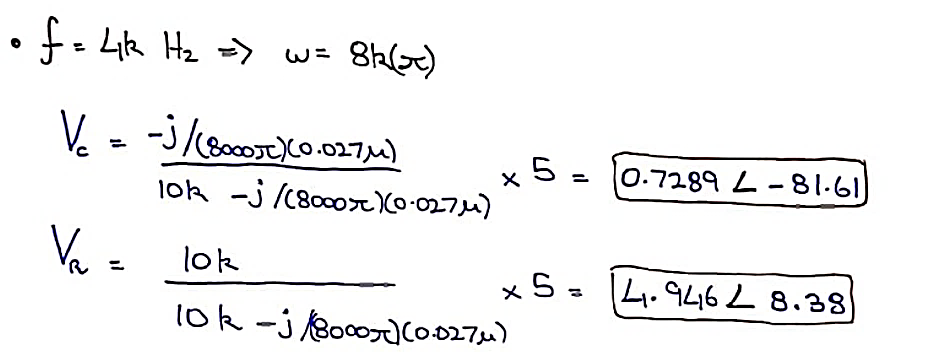 • f = 4k Hz => ω = 8k(π)
V_c = -j/(8000π)(0.027μ) / 10k -j/(8000π)(0.027μ) × 5 = 0.7289 ∠ -81.61
V_R = 10k / 10k -j/(8000π)(0.027μ) × 5 = 4.946 ∠ 8.38